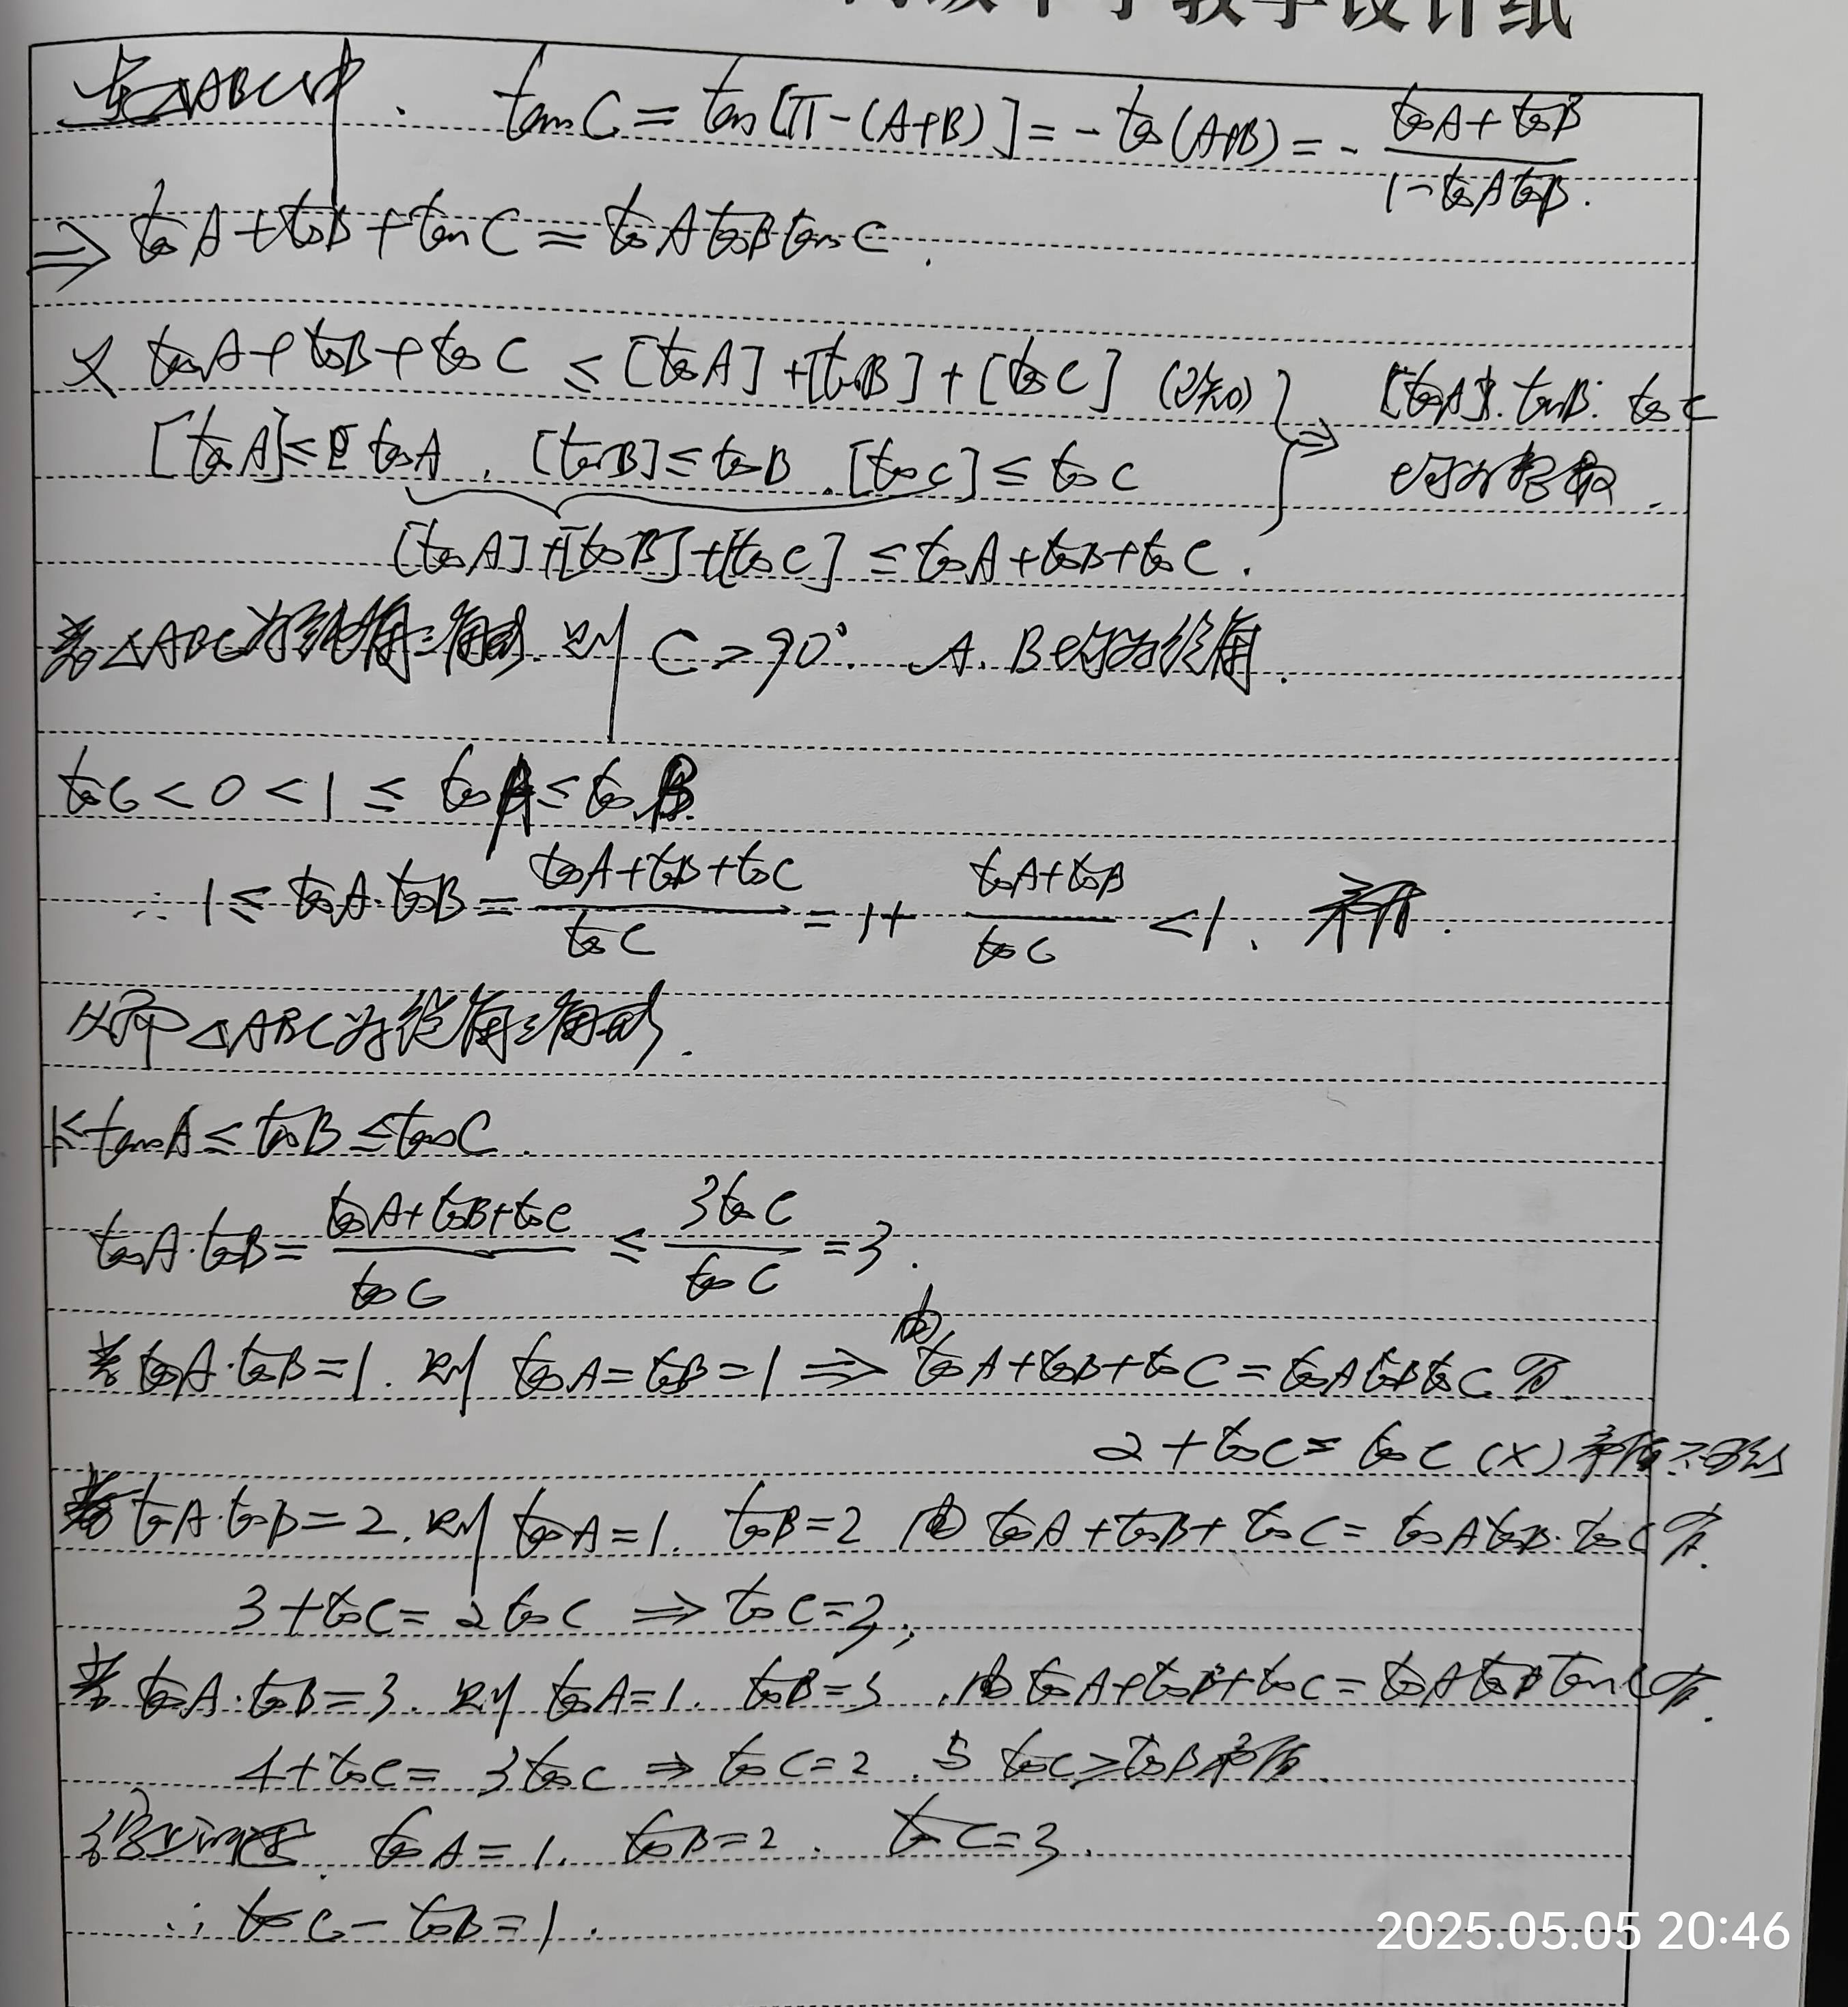 教学设计纸
在△ABC中. tanC = tan[π-(A+B)] = - tan(A+B) = - (tanA + tanB)/(1 - tanA tanB).
⇒ tanA + tanB + tanC = tanA tanB tanC.
又 tanA + tanB + tanC ≤ [tanA] + [tanB] + [tanC] (已知) } ⇒ [tanA]. tanB. tanC
[tanA] ≤ tanA. [tanB] ≤ tanB. [tanC] ≤ tanC 均为整数.
[tanA] + [tanB] + [tanC] ≤ tanA + tanB + tanC.
若△ABC为钝角三角形. 则 C > 90°. A. B均为锐角.
tanC < 0 < 1 ≤ tanA ≤ tanB.
∴ 1 ≤ tanA·tanB = (tanA + tanB + tanC)/tanC = 1 + (tanA + tanB)/tanC < 1. 矛盾.
从而△ABC为锐角三角形.
1 ≤ tanA ≤ tanB ≤ tanC.
tanA·tanB = (tanA + tanB + tanC)/tanC ≤ 3tanC/tanC = 3.
若 tanA·tanB = 1. 则 tanA = tanB = 1 ⇒ 由 tanA + tanB + tanC = tanA tanB tanC 可
2 + tanC = tanC (×) 矛盾
若 tanA·tanB = 2. 则 tanA = 1. tanB = 2 由 tanA + tanB + tanC = tanA tanB·tanC 可.
3 + tanC = 2tanC ⇒ tanC = 3;
若 tanA·tanB = 3. 则 tanA = 1. tanB = 3. 由 tanA + tanB + tanC = tanA tanB tanC 可.
4 + tanC = 3tanC ⇒ tanC = 2. 与 tanC ≥ tanB 矛盾.
综上所述. tanA = 1. tanB = 2. tanC = 3.
∴ tanC - tanB = 1.
2025.05.05 20:46